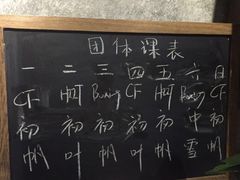 团体课表
一 二 三 四 五 六 日
CF HIIT Boxing CF HIIT Boxing CF
初 初 初 初 中 初
帆 叶 帆 叶 帆 雪 帆